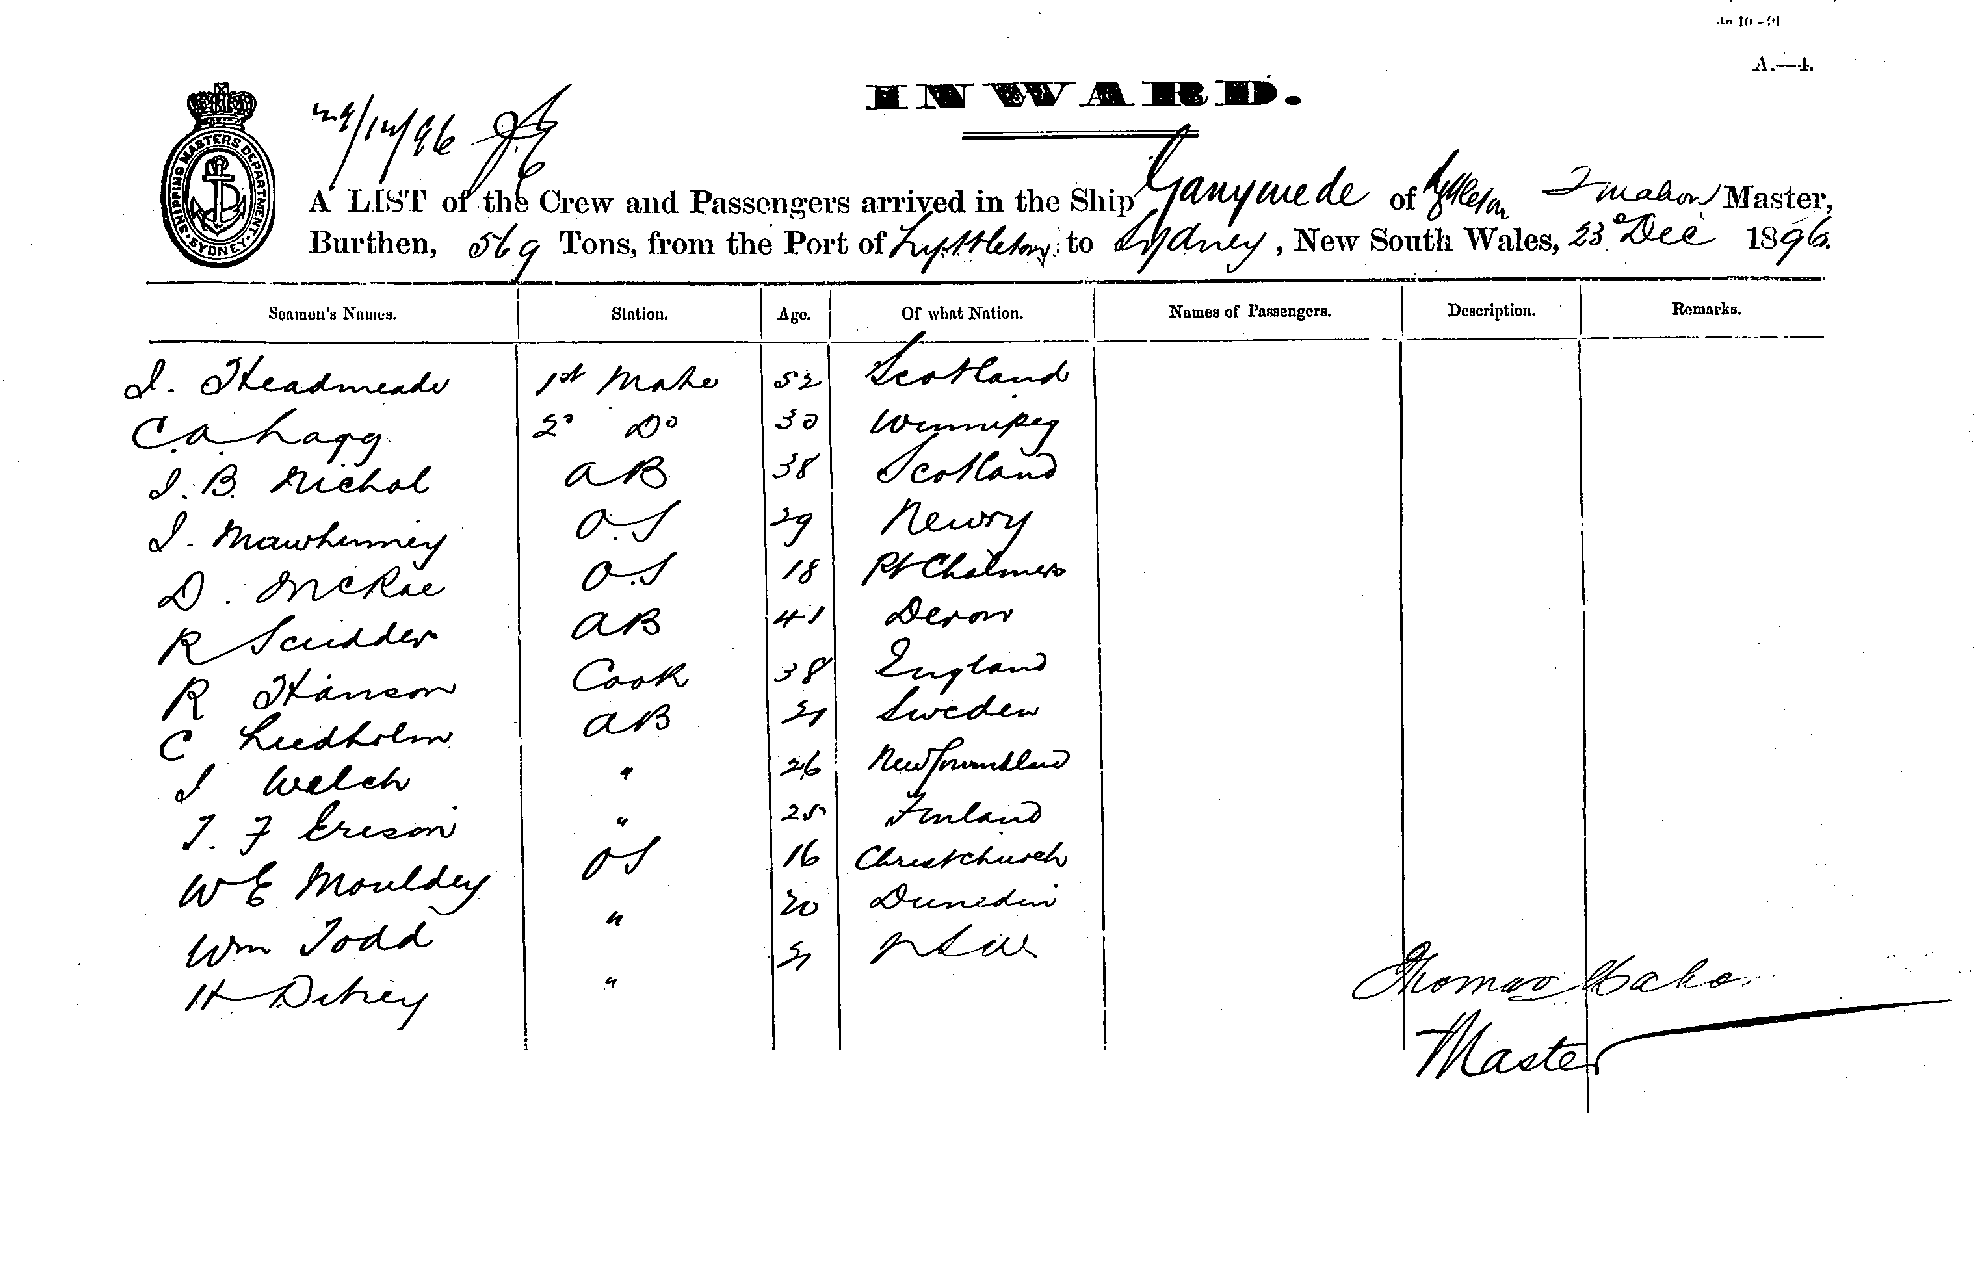 A.—4.
INWARD.
29/12/96
SHIPPING MASTERS DEPARTMENT SYDNEY
A LIST of the Crew and Passengers arrived in the Ship Ganymede of Lyttleton T Mahon Master,
Burthen, 569 Tons, from the Port of Lyttleton to Sydney, New South Wales, 23d Dec 1896.
Seamen's Names. Station. Age. Of what Nation. Names of Passengers. Description. Remarks.
J. Headmeade 1st Mate 52 Scotland
C. A. Lagg 2o Do 30 Winnipeg
J. B. Nichol AB 38 Scotland
J. Mawhinney O.S 29 Newry
D. McRae O.S 18 Pt Chalmers
R Scudder AB 41 Devon
R Hanson Cook 38 England
C Liedholm AB 21 Sweden
J Welch " 26 Newfoundland
J. F Ericson " 25 Finland
W E Mouldey OS 16 Christchurch
Wm Todd " 20 Dunedin
H " 21 NSW
Thomas Mahon
Master